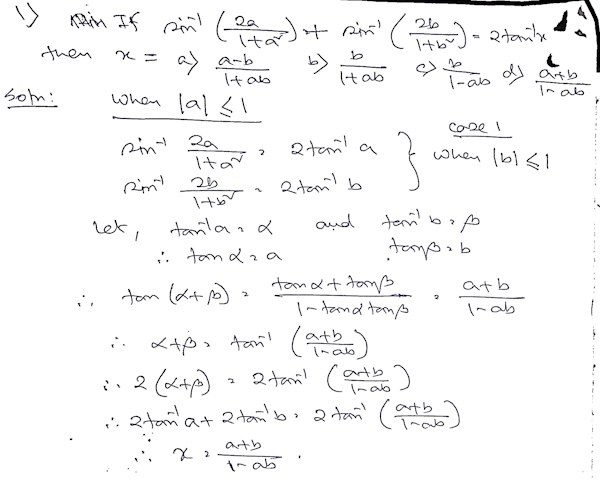 1) If sin⁻¹ (2a/1+a²) + sin⁻¹ (2b/1+b²) = 2tan⁻¹x
then x = a) a-b/1+ab b) b/1+ab c) b/1-ab d) a+b/1-ab
Soln: when |a| ≤ 1
sin⁻¹ 2a/1+a² = 2tan⁻¹ a } case 1
sin⁻¹ 2b/1+b² = 2tan⁻¹ b when |b| ≤ 1
Let, tan⁻¹a = α and tan⁻¹ b = β
∴ tan α = a tanβ = b
∴ tan (α+β) = tanα + tanβ/1-tanα tanβ = a+b/1-ab
∴ α+β = tan⁻¹ (a+b/1-ab)
∴ 2(α+β) = 2tan⁻¹ (a+b/1-ab)
∴ 2tan⁻¹a + 2tan⁻¹b = 2tan⁻¹ (a+b/1-ab)
∴ x = a+b/1-ab .